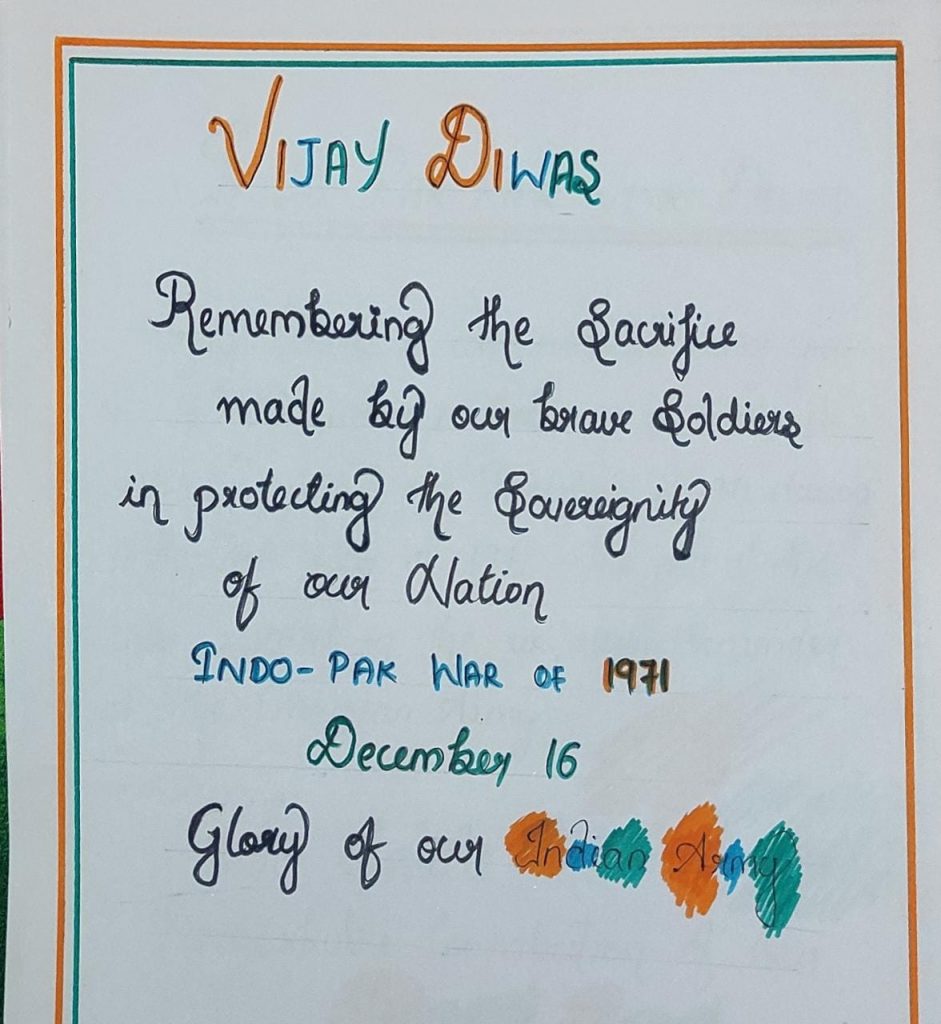 VIJAY DIWAS
Remembering the Sacrifice
made by our brave Soldiers
in protecting the Sovereignity
of our Nation
INDO-PAK WAR OF 1971
December 16
Glory of our Indian Army